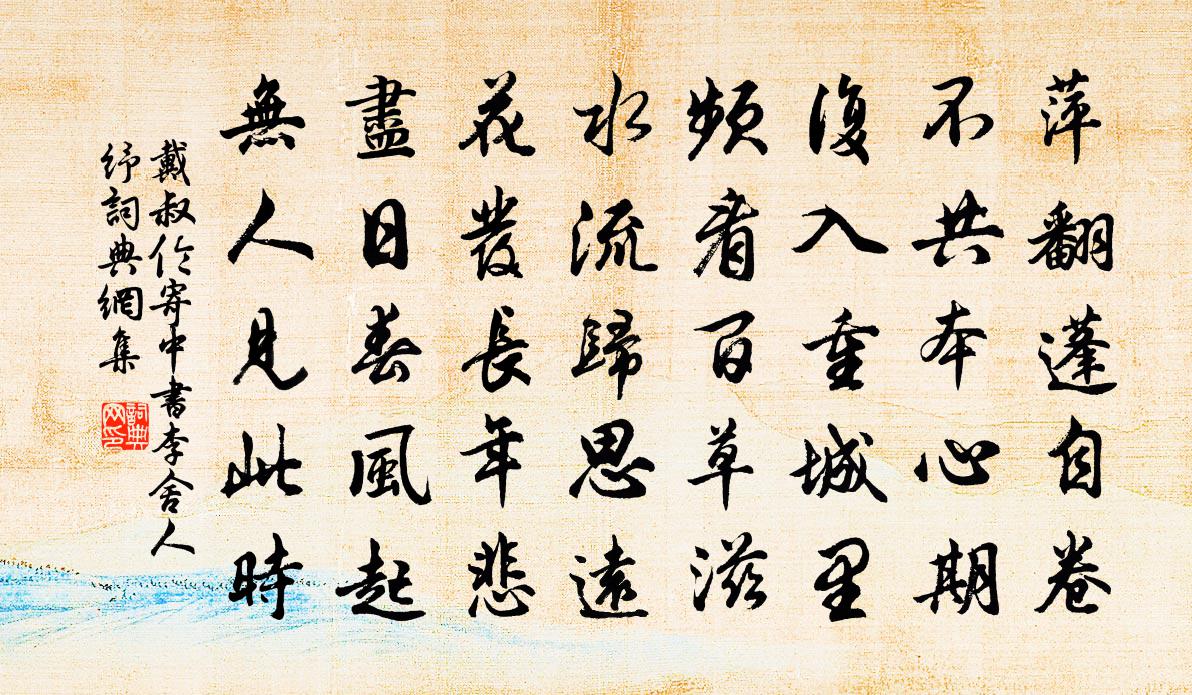 萍翻蓬自卷
不共本心期
復入重城里
頻看百草滋
水流歸思遠
花發長年悲
盡日春風起
無人見此時
戴叔伦寄中書李舍人
纾詞典網集
詞典网印